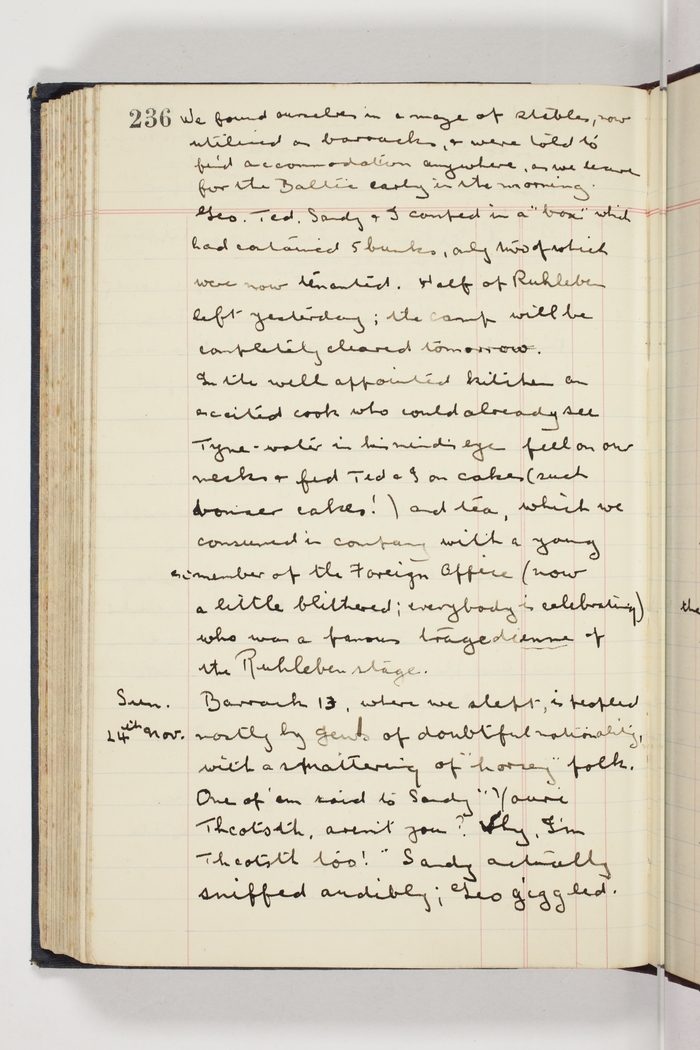 236 We found ourselves in a maze of stables, now
utilised as barracks, & were told to
find accommodation anywhere, as we leave
for the Baltic early in the morning.
Geo. Ted. Sandy & I camped in a "box" which
had contained 5 bunks, only two of which
were now tenanted. Half of Ruhleben
left yesterday; the camp will be
completely cleared tomorrow.
In the well appointed kitchen an
excited cook who could already see
Tyne-water in his mind's eye fell on our
necks & fed Ted & I on cakes (such
bonzer cakes!) and tea, which we
consumed in company with a young
ex-member of the Foreign Office (now
a little blithered; everybody is celebrating)
who was a famous tragedienne of
the Ruhleben stage.
Sun. Barrack 13, where we slept, is peopled
24th Nov. mostly by gents of doubtful nationality,
with a smattering of "horsey" folk.
One of 'em said to Sandy "Youre
Thcotsth, aren't you? Why, I'm
Thcotsth too!" Sandy actually
sniffed audibly; Geo giggled.
the